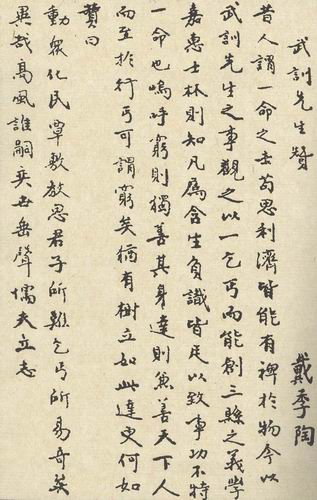 武訓先生贊
戴季陶
昔人謂一命之士苟思利濟皆能有裨於物今以
武訓先生之事觀之以一乞丐而能創三縣之義學
嘉惠士林則知凡屬含生負識皆足以致事功不特
一命也嗚呼窮則獨善其身達則兼善天下人
而至於行丐可謂窮矣猶有樹立如此達更何如
贊曰
動眾化民覃敷教思君子所難乞丐所易奇矣
異哉高風誰嗣奕世垂聲懦夫立志